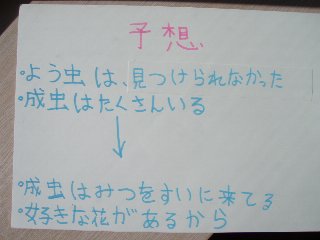 予想
・よう虫は、見つけられなかった
・成虫はたくさんいる
↓
・成虫はみつをすいに来てる
・好きな花があるから